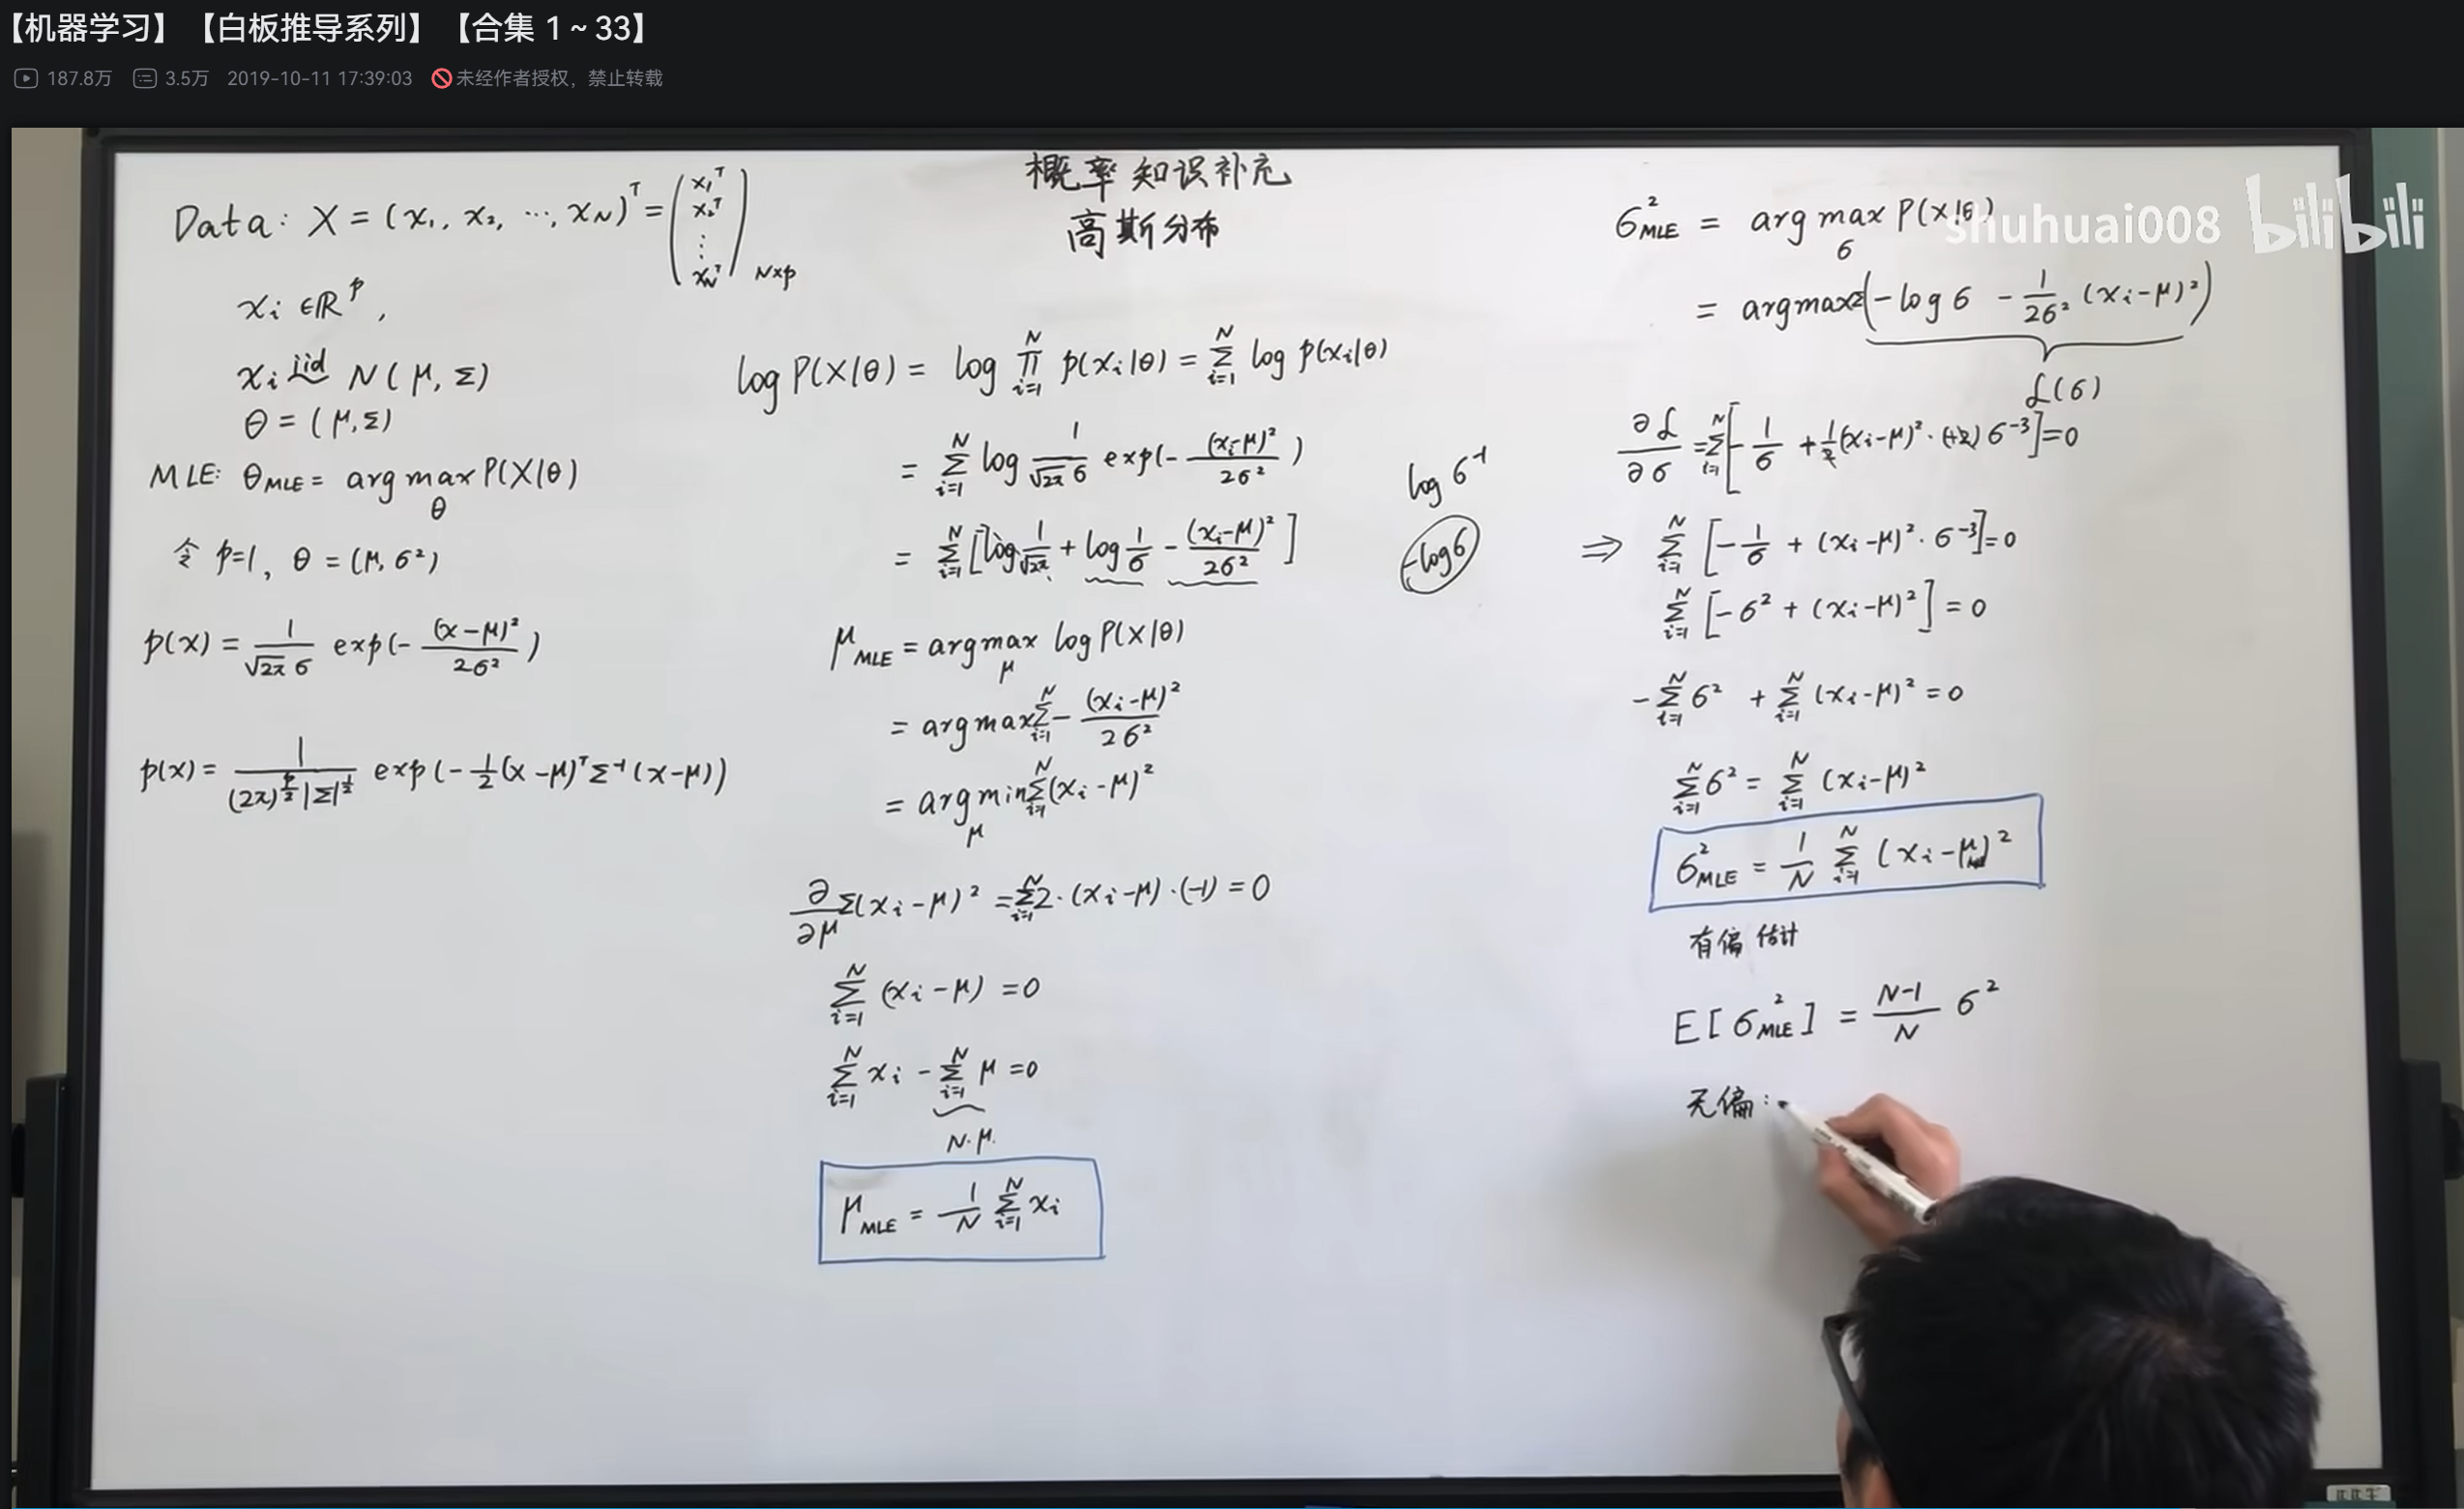 【机器学习】【白板推导系列】【合集 1～33】
187.8万 3.5万 2019-10-11 17:39:03 未经作者授权，禁止转载
概率知识补充
高斯分布
shuhuai008 bilibili
Data: X = (x₁, x₂, ⋯, x_N)ᵀ = (x₁ᵀ x₂ᵀ ⋮ x_Nᵀ) N×p
xᵢ ∈ ℝᵖ,
xᵢ iid~ N(μ, Σ)
θ = (μ, Σ)
MLE: θ_MLE = arg max_θ P(X|θ)
令 p=1, θ = (μ, σ²)
p(x) = 1/(√2π σ) exp(-(x-μ)²/2σ²)
p(x) = 1/((2π)^{p/2}|Σ|^{1/2}) exp(-1/2(x-μ)ᵀΣ⁻¹(x-μ))
log P(X|θ) = log ∏_{i=1}^N p(xᵢ|θ) = Σ_{i=1}^N log p(xᵢ|θ)
= Σ_{i=1}^N log 1/(√2π σ) exp(-(xᵢ-μ)²/2σ²)
= Σ_{i=1}^N [log 1/√2π + log 1/σ - (xᵢ-μ)²/2σ²]
log σ⁻¹
-log σ
μ_MLE = arg max_μ log P(X|θ)
= arg max Σ_{i=1}^N - (xᵢ-μ)²/2σ²
= arg min_μ Σ_{i=1}^N (xᵢ-μ)²
∂/∂μ Σ(xᵢ-μ)² = Σ_{i=1}^N 2·(xᵢ-μ)·(-1) = 0
Σ_{i=1}^N (xᵢ-μ) = 0
Σ_{i=1}^N xᵢ - Σ_{i=1}^N μ = 0
N·μ.
μ_MLE = 1/N Σ_{i=1}^N xᵢ
σ²_MLE = arg max_σ P(X|θ)
= arg max Σ(-log σ - 1/2σ² (xᵢ-μ)²)
ℒ(σ)
∂ℒ/∂σ = Σ_{i=1}^N [-1/σ + 1/2(xᵢ-μ)²·(+2)σ⁻³] = 0
⇒ Σ_{i=1}^N [-1/σ + (xᵢ-μ)²·σ⁻³] = 0
Σ_{i=1}^N [-σ² + (xᵢ-μ)²] = 0
-Σ_{i=1}^N σ² + Σ_{i=1}^N (xᵢ-μ)² = 0
Σ_{i=1}^N σ² = Σ_{i=1}^N (xᵢ-μ)²
σ²_MLE = 1/N Σ_{i=1}^N (xᵢ-μ)²
有偏估计
E[σ²_MLE] = (N-1)/N σ²
无偏: